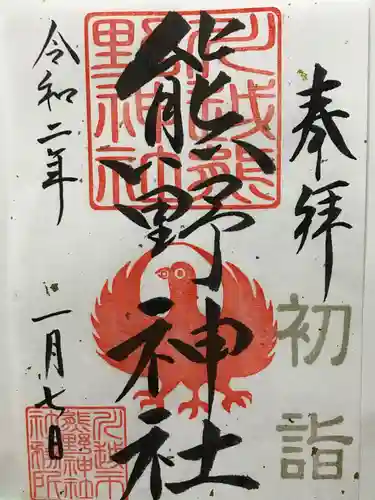 奉拝
初詣
熊野神社
令和二年
一月七日
川越熊野神社
川越市熊野神社社務所